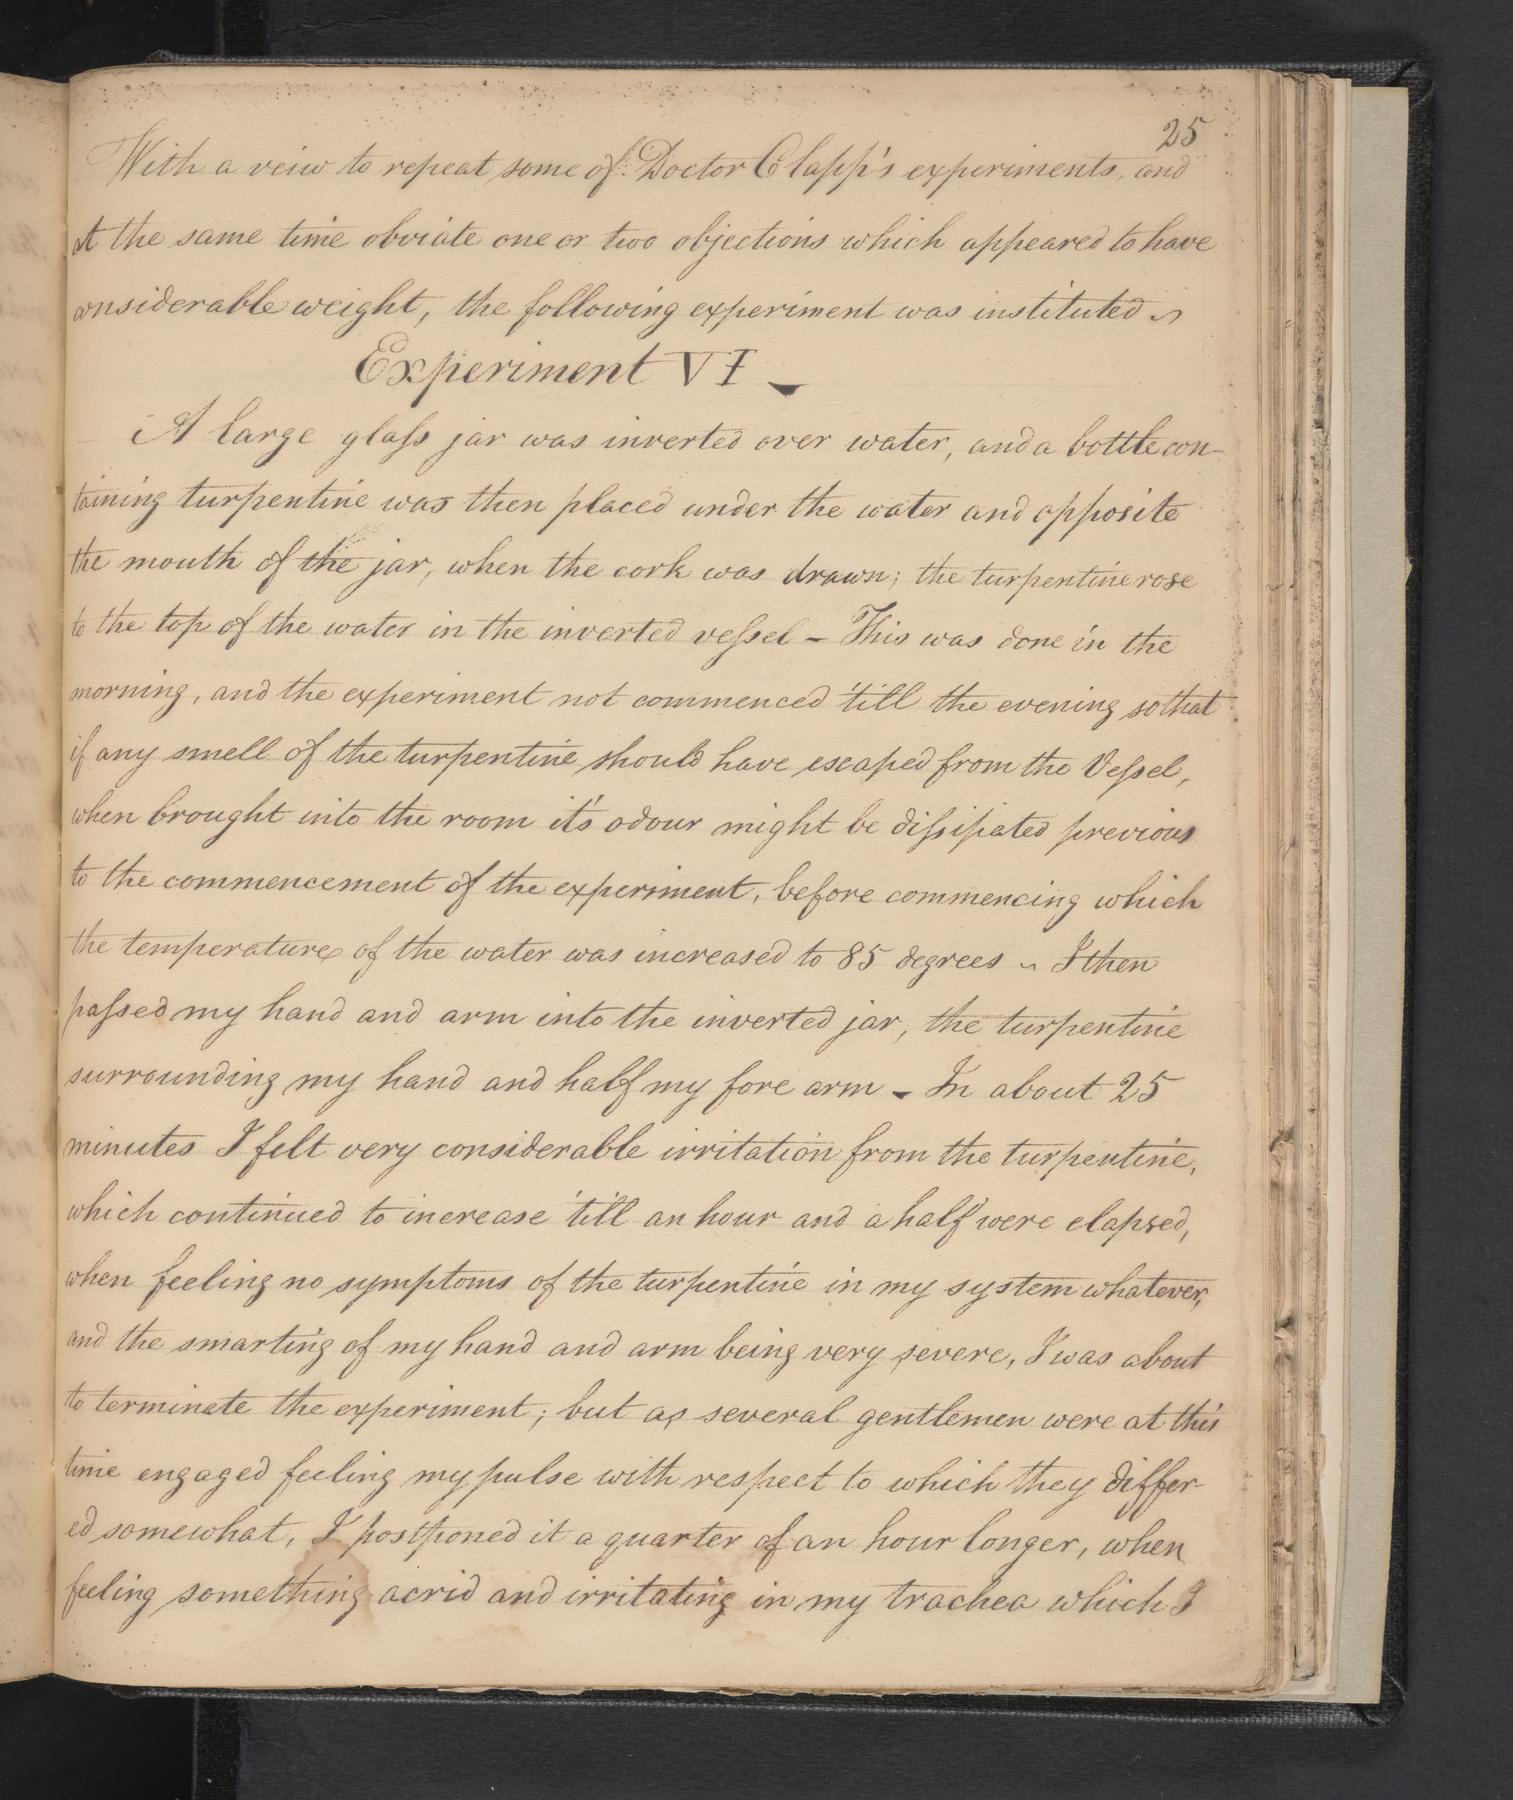 25
With a veiw to repeat some of Doctor Clapp's experiments, and
at the same time obviate one or two objections which appeared to have
considerable weight, the following experiment was instituted
Experiment VI
A large glaſs jar was inverted over water, and a bottle con-
taining turpentine was then placed under the water and opposite
the mouth of the jar, when the cork was drawn; the turpentine rose
to the top of the water in the inverted veſsel – This was done in the
morning, and the experiment not commenced 'till the evening so that
if any smell of the turpentine should have escaped from the Veſsel,
when brought into the room it's odour might be diſsipated previous
to the commencement of the experiment, before commencing which
the temperature of the water was increased to 85 degrees ~ I then
paſsed my hand and arm into the inverted jar, the turpentine
surrounding my hand and half my fore arm – In about 25
minutes I felt very considerable irritation from the turpentine,
which continued to increase 'till an hour and a half were elapsed,
when feeling no symptoms of the turpentine in my system whatever,
and the smarting of my hand and arm being very severe, I was about
to terminate the experiment; but as several gentlemen were at this
time engaged feeling my pulse with respect to which they differ-
ed somewhat, I postponed it a quarter of an hour longer, when
feeling something acrid and irritating in my trachea which I